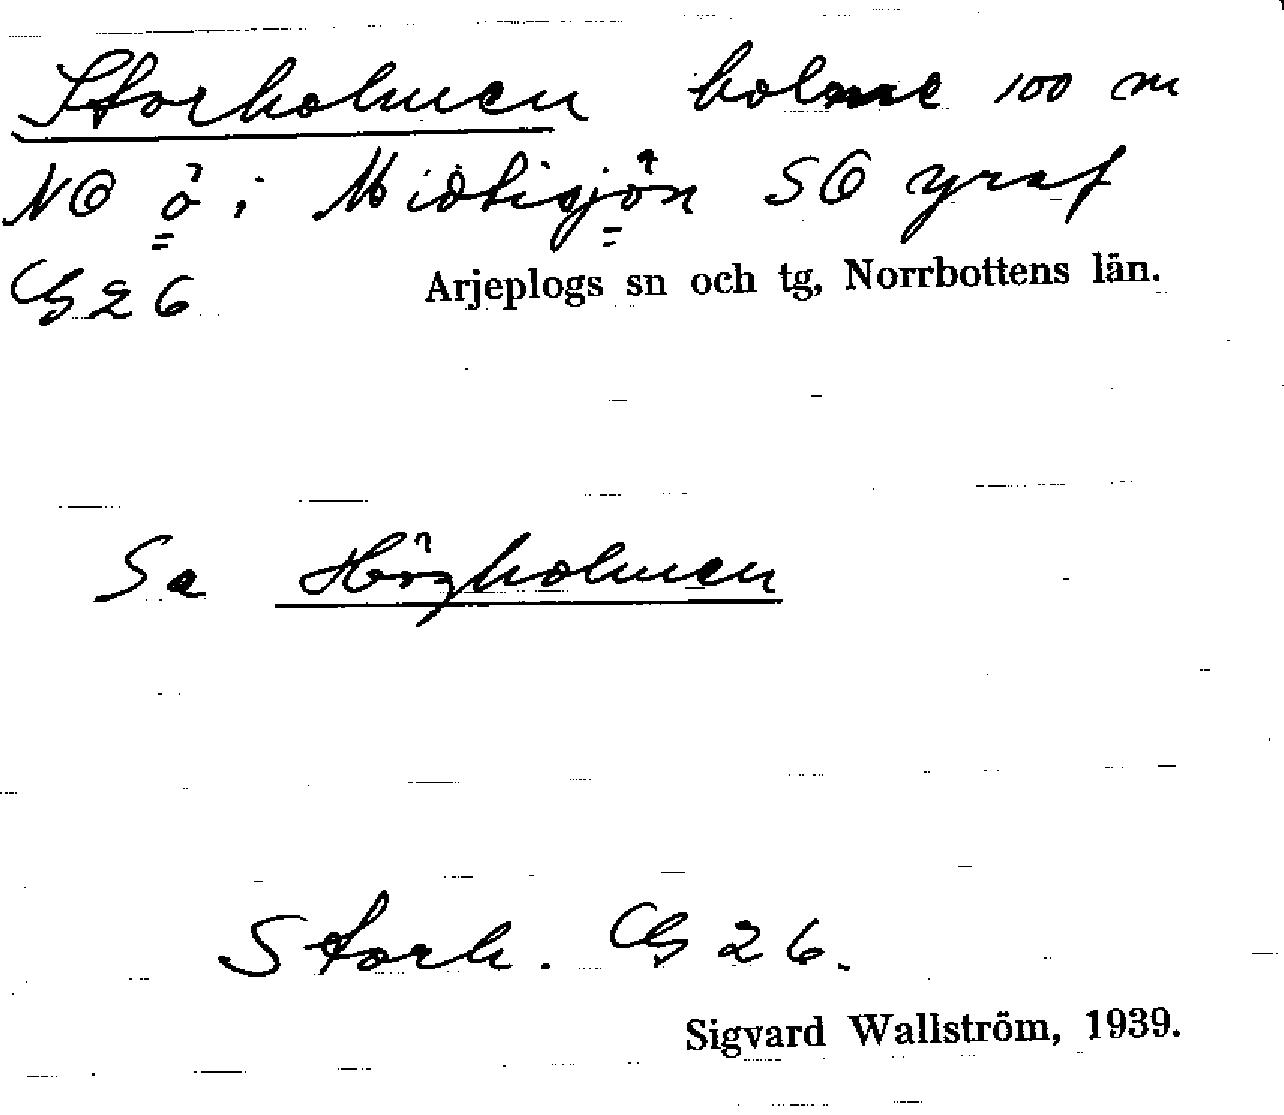 Storholmen holme 100 m
NO ö i Midtisjön SO graf
G 26
Arjeplogs sn och tg, Norrbottens län.
Se Högholmen
Storh. G 26.
Sigvard Wallström, 1939.